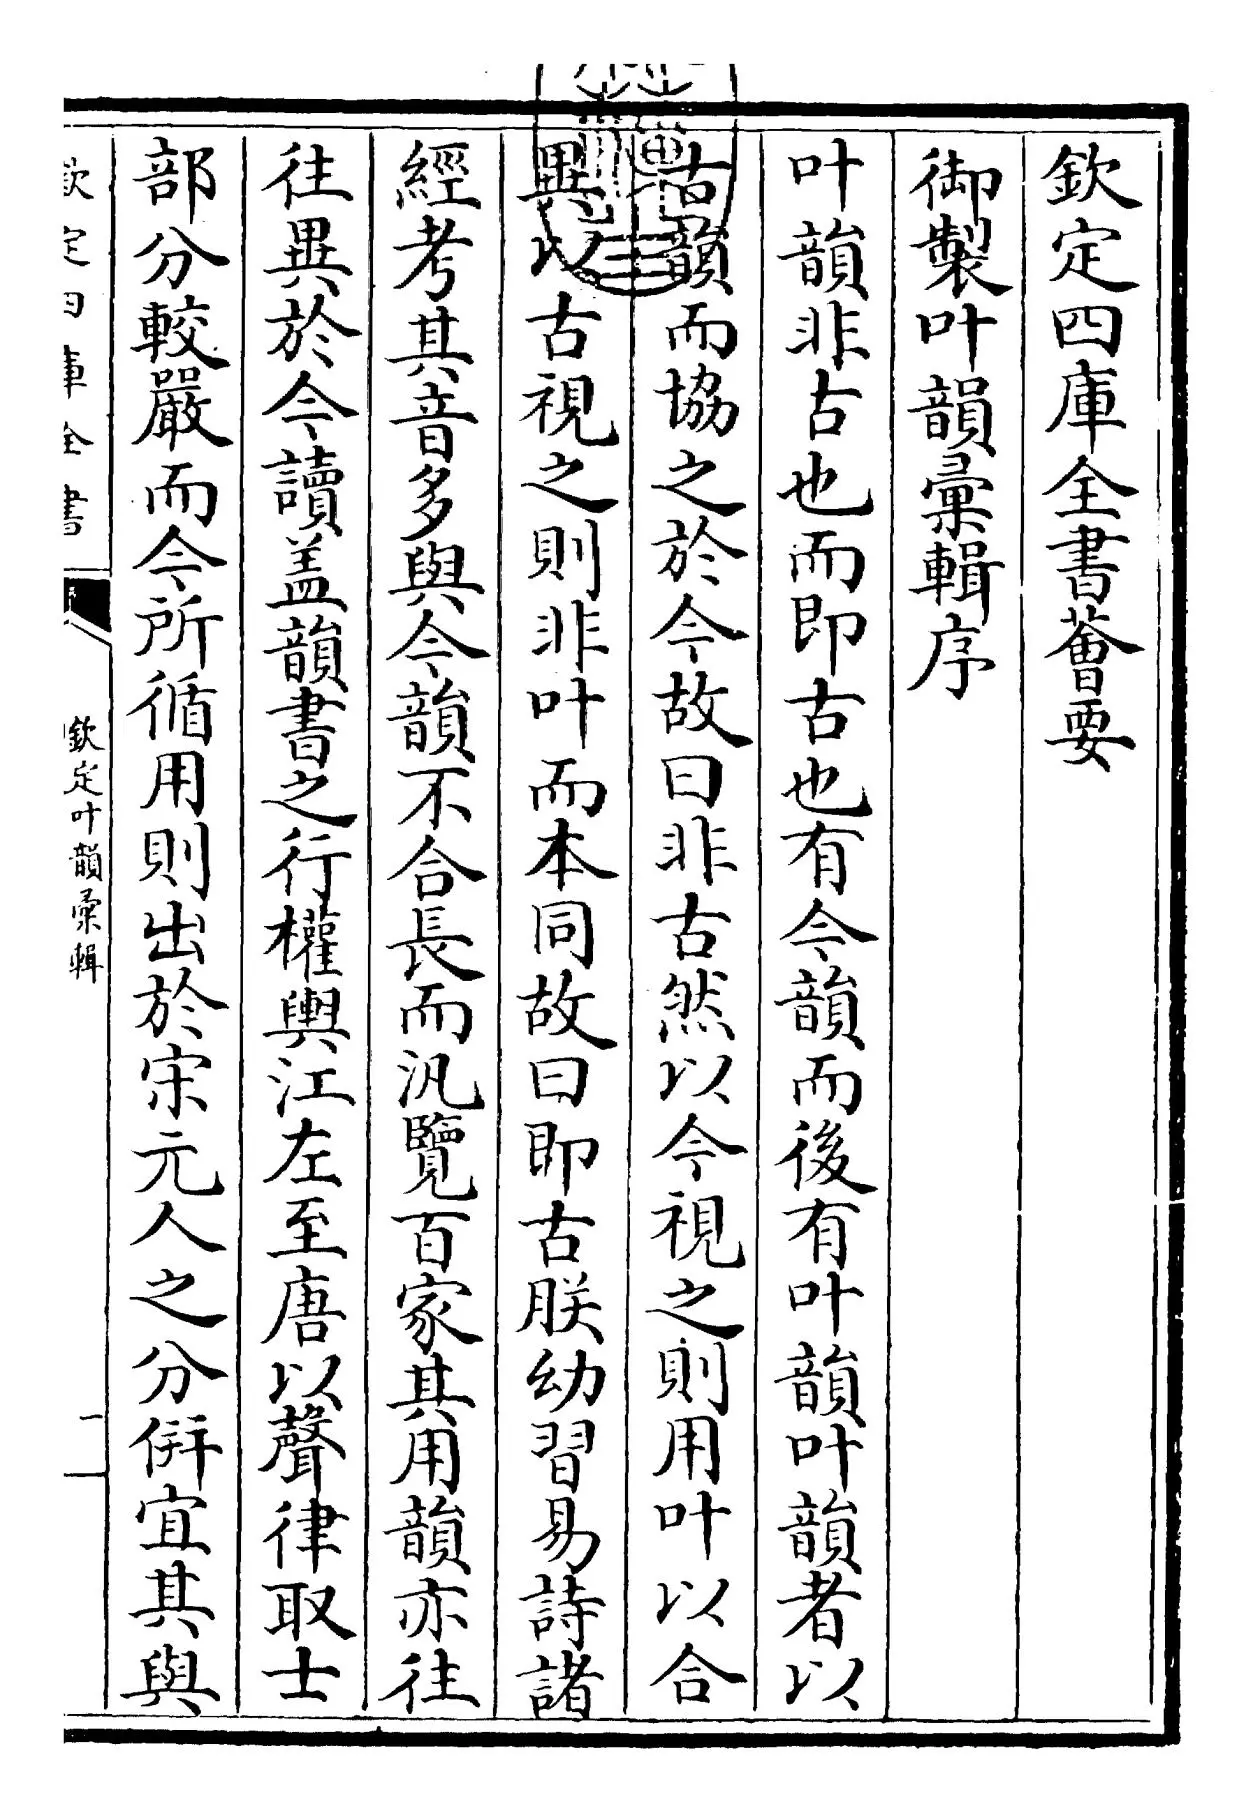 欽定四庫全書薈要
御製叶韻彙輯序
叶韻非古也而即古也有今韻而後有叶韻叶韻者以
古韻而協之於今故曰非古然以今視之則用叶以合
異以古視之則非叶而本同故曰即古朕幼習易詩諸
經考其音多與今韻不合長而汎覽百家其用韻亦往
往異於今讀盖韻書之行權輿江左至唐以聲律取士
部分較嚴而今所循用則出於宋元人之分倂宜其與
欽定四庫全書
欽定叶韻彙輯
一